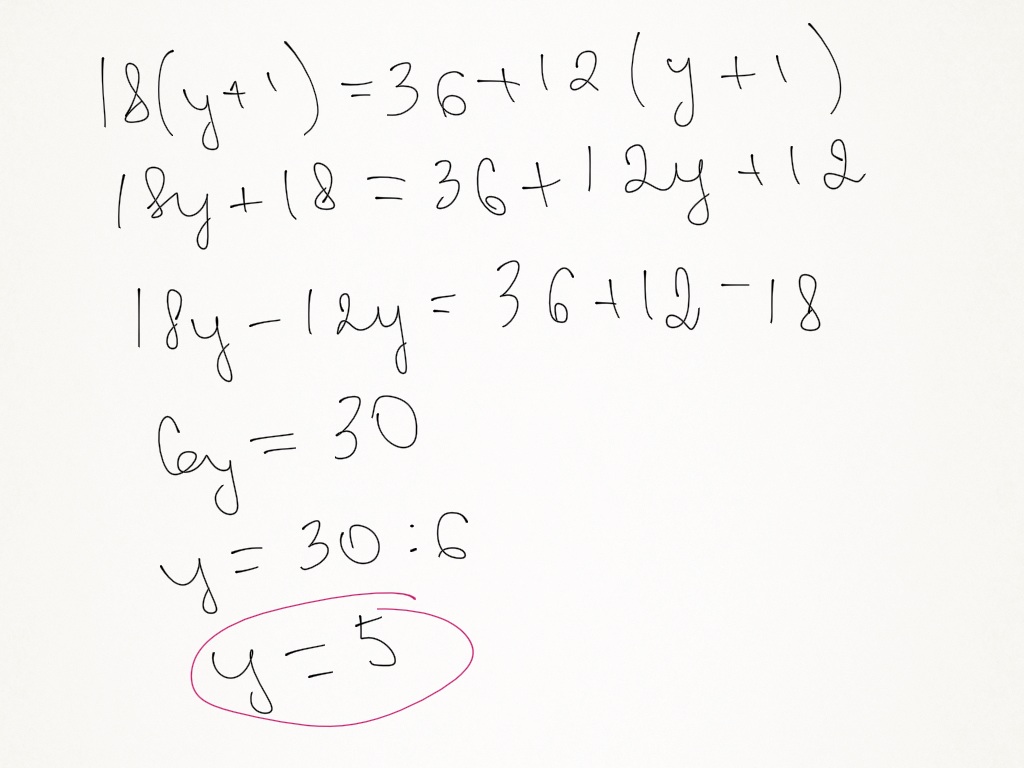 18(y+1)=36+12(y+1)
18y+18=36+12y+12
18y-12y=36+12-18
6y=30
y=30:6
y=5